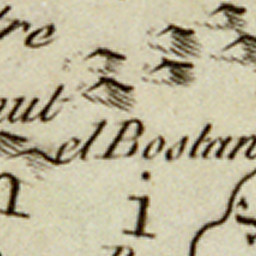 tre
out
el Bostan
n i